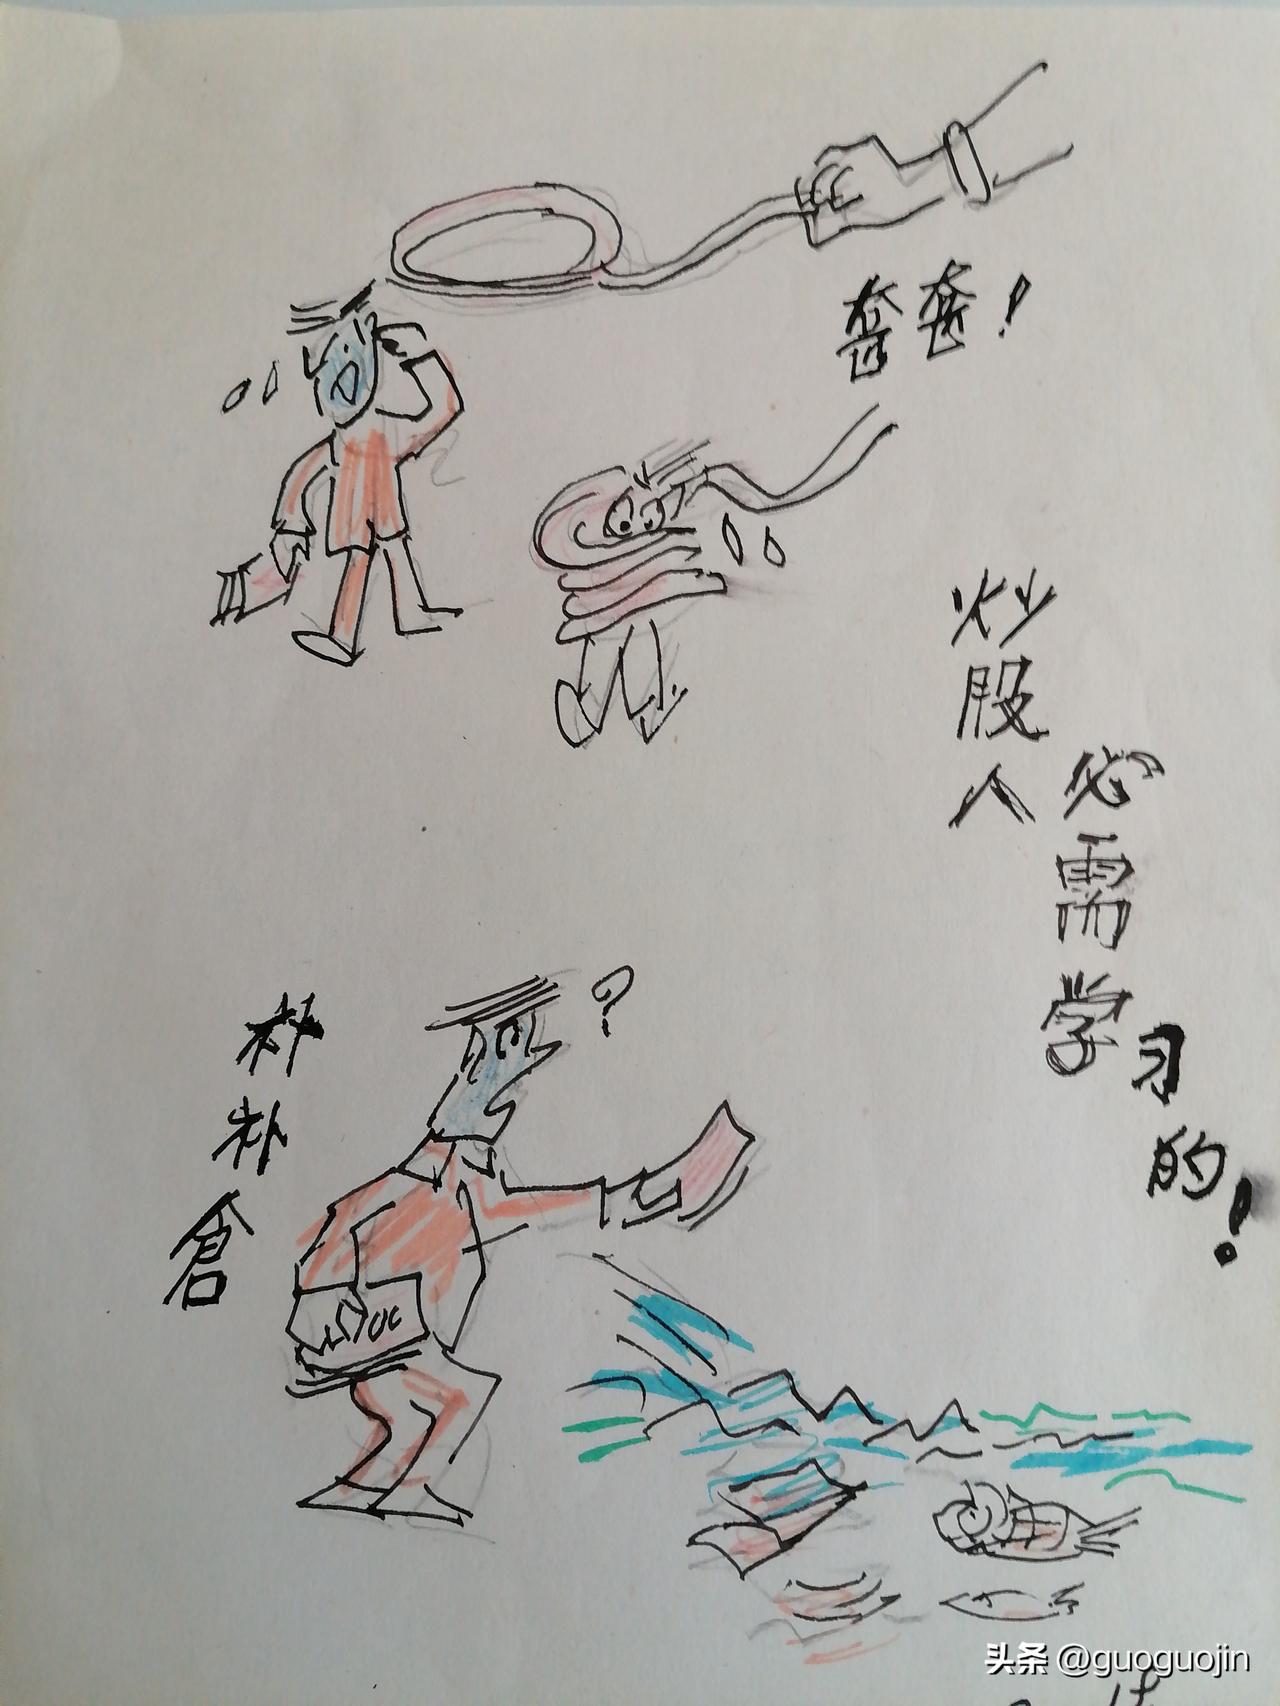 套套!
炒股人
必需学习的!
补补倉
?
头条 @guoguojin